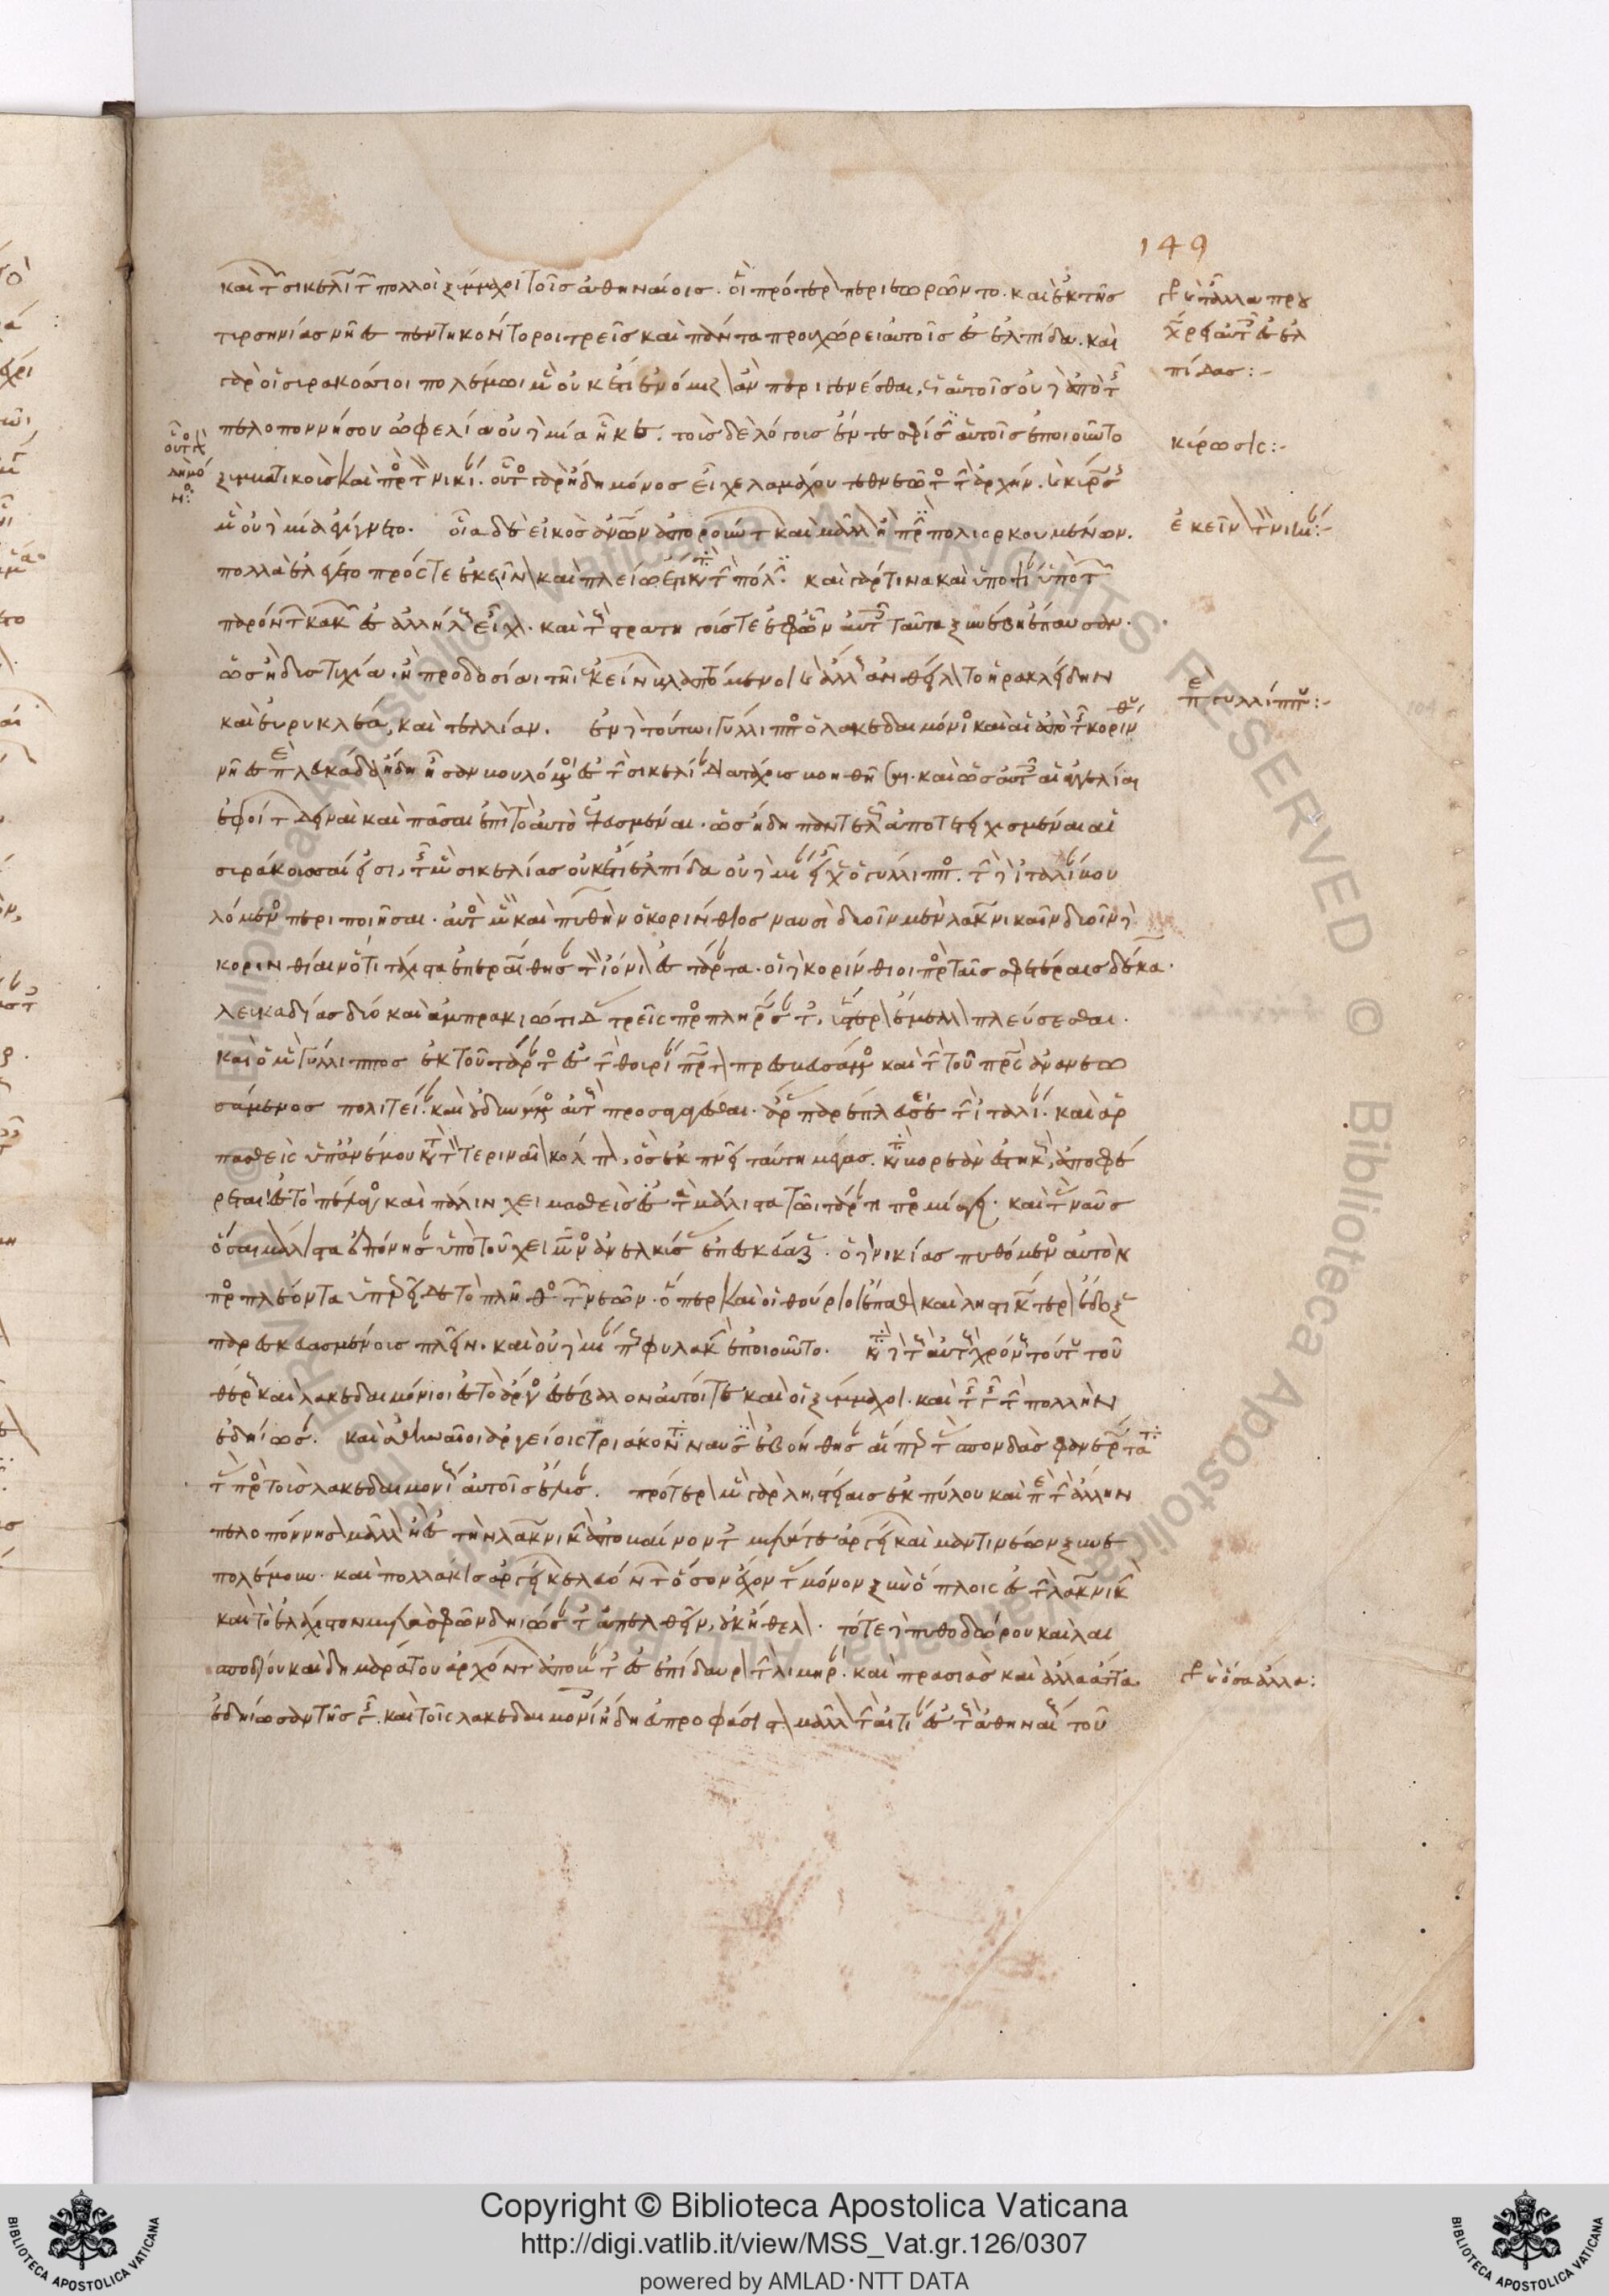 καὶ τῶν σικελῶν πολλοὶ ξύμμαχοι τοῖς ἀθηναίοις. οἳ πρότερον περιεωρῶντο. καὶ ἐκ τῆς
τυρσηνίας νῆες πεντηκόντοροι τρεῖς καὶ πάντα προυχώρει αὐτοῖς ἐς ἐλπίδα. καὶ
γὰρ οἱ συρακόσιοι πολέμωι μὲν οὐκέτι ἐνόμιζον ἂν περιγενέσθαι, ὡς αὐτοῖς οὐδὲ ἀπὸ τῆς
πελοποννήσου ὠφελία οὐδεμία ἧκε. τοὺς δὲ λόγους ἔν τε σφίσιν αὐτοῖς ἐποιοῦντο
ξυμβατικοὺς καὶ πρὸς τὸν νικίαν. οὗτος γὰρ ἤδη μόνος εἶχε λαμάχου τεθνεῶτος τὴν ἀρχήν. καὶ κύρωσις
μὲν οὐδεμία ἐγίγνετο. οἷα δὲ εἰκὸς ἀνθρώπων ἀπορούντων καὶ μᾶλλον ἢ πρὶν πολιορκουμένων.
πολλὰ ἐλέγετο πρός τε ἐκεῖνον καὶ πλείω ἔτι κατὰ τὴν πόλιν. καὶ γάρ τινα καὶ ὑποψίαν ὑπὸ τῶν
παρόντων κακῶν ἐς ἀλλήλους εἶχον. καὶ τοὺς στρατηγούς τε ἐφ' ὧν αὐτοῖς ταῦτα ξυνέβη ἔπαυσαν.
ὡς ἢ δυστυχίαι ἢ προδοσίαι τῆι ἐκείνων βλαπτόμενοι καὶ ἄλλους ἀνθείλοντο ἡρακλείδην
καὶ εὐρυκλέα, καὶ τελλίαν. ἐν δὲ τούτωι γύλιππος ὁ λακεδαιμόνιος καὶ αἱ ἀπὸ τῆς κορίνθου
νῆες περὶ λευκάδα ἤδη ἦσαν βουλόμενοι ἐς τὴν σικελίαν διὰ τάχους βοηθῆσαι. καὶ ὡς αὐτοῖς αἱ ἀγγελίαι
ἐφοίτων δειναὶ καὶ πᾶσαι ἐπὶ τὸ αὐτὸ ἐψευσμέναι. ὡς ἤδη παντελῶς ἀποτετειχισμέναι αἱ
συράκουσαί εἰσι, τῆς μὲν σικελίας οὐκέτι ἐλπίδα οὐδεμίαν εἶχεν ὁ γύλιππος. τὴν δὲ ἰταλίαν βου
λόμενος περιποιῆσαι. αὐτὸς μὲν καὶ πυθὴν ὁ κορίνθιος ναυσὶ δυοῖν μὲν λακωνικαῖν δυοῖν δὲ
κορινθίαιν ὅτι τάχιστα ἐπεραιώθησαν τὸν ἰόνιον ἐς τάραντα. οἱ δὲ κορίνθιοι πρὸς ταῖς σφετέραις δέκα.
λευκαδίας δύο καὶ ἀμπρακιώτιδας τρεῖς προσπληρώσαντες, ὕστερον ἔμελλον πλεύσεσθαι.
καὶ ὁ μὲν γύλιππος ἐκ τοῦ τάραντος ἐς τὴν θουρίαν πρῶτον πρεσβευσάμενος καὶ τὴν τοῦ πατρὸς ἀνανεω
σάμενος πολιτείαν καὶ οὐ δυνάμενος αὐτοὺς προσαγαγέσθαι. ἄρας παρέπλει τὴν ἰταλίαν. καὶ ἁρ
πασθεὶς ὑπ' ἀνέμου κατὰ τὸν τεριναῖον κόλπον, ὃς ἐκπνεῖ ταύτηι μέγας. κατὰ βορέαν ἑστηκώς, ἀποφέ
ρεται ἐς τὸ πέλαγος καὶ πάλιν χειμασθεὶς ἐς τὰ μάλιστα τῶι τάραντι προσμίσγει. καὶ τὰς ναῦς
ὅσαι μάλιστα ἐπόνησαν ὑπὸ τοῦ χειμῶνος ἀνελκύσας ἐπεσκεύαζεν. ὁ δὲ νικίας πυθόμενος αὐτὸν
προσπλέοντα ὑπερεῖδε τὸ πλῆθος τῶν νεῶν. ὅπερ καὶ οἱ θούριοι ἔπαθον καὶ ληστικώτερον ἔδοξε
παρεσκευασμένους πλεῖν. καὶ οὐδεμίαν πω φυλακὴν ἐποιοῦντο. κατὰ δὲ τοὺς αὐτοὺς χρόνους τούτου τοῦ
θέρους καὶ λακεδαιμόνιοι ἐς τὸ ἄργος ἐσέβαλον αὐτοί τε καὶ οἱ ξύμμαχοι. καὶ τῆς γῆς τὴν πολλὴν
ἐδήιωσαν. καὶ ἀθηναῖοι ἀργείοις τριάκοντα ναυσὶν ἐβοήθησαν αἵπερ τὰς σπονδὰς φανερώτατα
τὰς πρὸς τοὺς λακεδαιμονίους αὐτοῖς ἔλυσαν. πρότερον μὲν γὰρ ληιστείαις ἐκ πύλου καὶ περὶ τὴν ἄλλην
πελοπόννησον μᾶλλον ἢ ἐς τὴν λακωνικὴν ἀποβαίνοντες μετά τε ἀργείων καὶ μαντινέων ξυνε
πολέμουν. καὶ πολλάκις ἀργείων κελευόντων ὅσον σχόντας μόνον ξὺν ὅπλοις ἐς τὴν λακωνικὴν
καὶ τὸ ἐλάχιστον μετὰ σφῶν δηιώσαντας ἀπελθεῖν, οὐκ ἤθελον. τότε δὲ πυθοδώρου καὶ λαι
σποδίου καὶ δημαράτου ἀρχόντων ἀποβάντες ἐς ἐπίδαυρον τὴν λιμηρὰν καὶ πρασιὰς καὶ ἄλλα ἄττα
ἐδήιωσαν τῆς γῆς. καὶ τοῖς λακεδαιμονίοις ἤδη εὐπροφάσιστον μᾶλλον τὴν αἰτίαν ἐς τοὺς ἀθηναίους τοῦ
149
κύρωσις:-
ἐκεῖνον τὸν νικίαν:-
περὶ γυλίππου:-
Copyright © Biblioteca Apostolica Vaticana
http://digi.vatlib.it/view/MSS_Vat.gr.126/0307
powered by AMLAD·NTT DATA
BIBLIOTECA APOSTOLICA VATICANA
BIBLIOTECA APOSTOLICA VATICANA